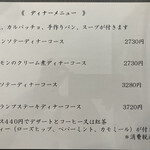 《 ディナーメニュー 》
、カルパッチョ、手作りパン、スープが付きます
ンソテーディナーコース 2730円
モンのクリーム煮ディナーコース 2730円
ソテーディナーコース 3280円
ランプステーキディナーコース 3720円
ス440円でデザートとコーヒー又は紅茶
ィー（ローズヒップ、ペパーミント、カモミール）が付
＊消費税